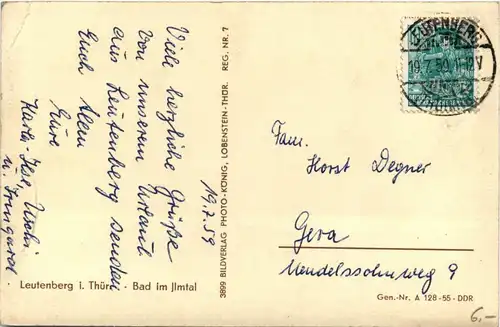 Viele herzliche Grüße
von unserem Urlaub
aus Leutenberg senden
Euch Allen
Eure
Uschi
u. Irmgard
19.7.59
3899 BILDVERLAG PHOTO-KÖNIG, LOBENSTEIN-THÜR. REG. NR. 7
LEUTENBERG
Fam.
Horst Degner
Gera
Mendelssohnweg 9
Leutenberg i. Thür. · Bad im Jlmtal
Gen.-Nr. A 128-55-DDR
6,-